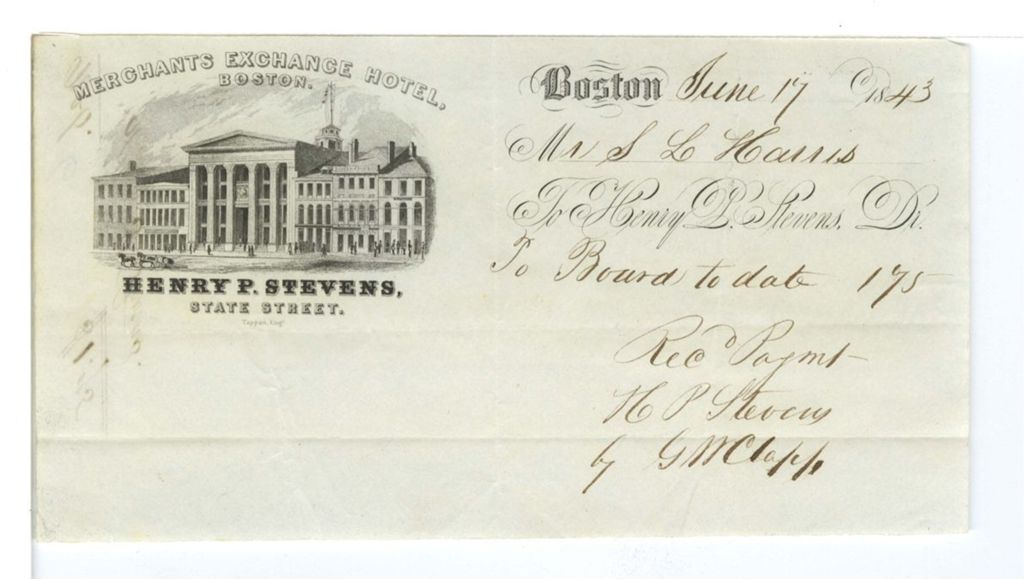 MERCHANTS EXCHANGE HOTEL,
BOSTON.
HENRY P. STEVENS,
STATE STREET.
Tappan, Engr.
Boston June 17 1843
Mr S L Harris
To Henry P. Stevens. Dr.
To Board to date 175
Recd Paymt
H P Stevens
by G W Clapp